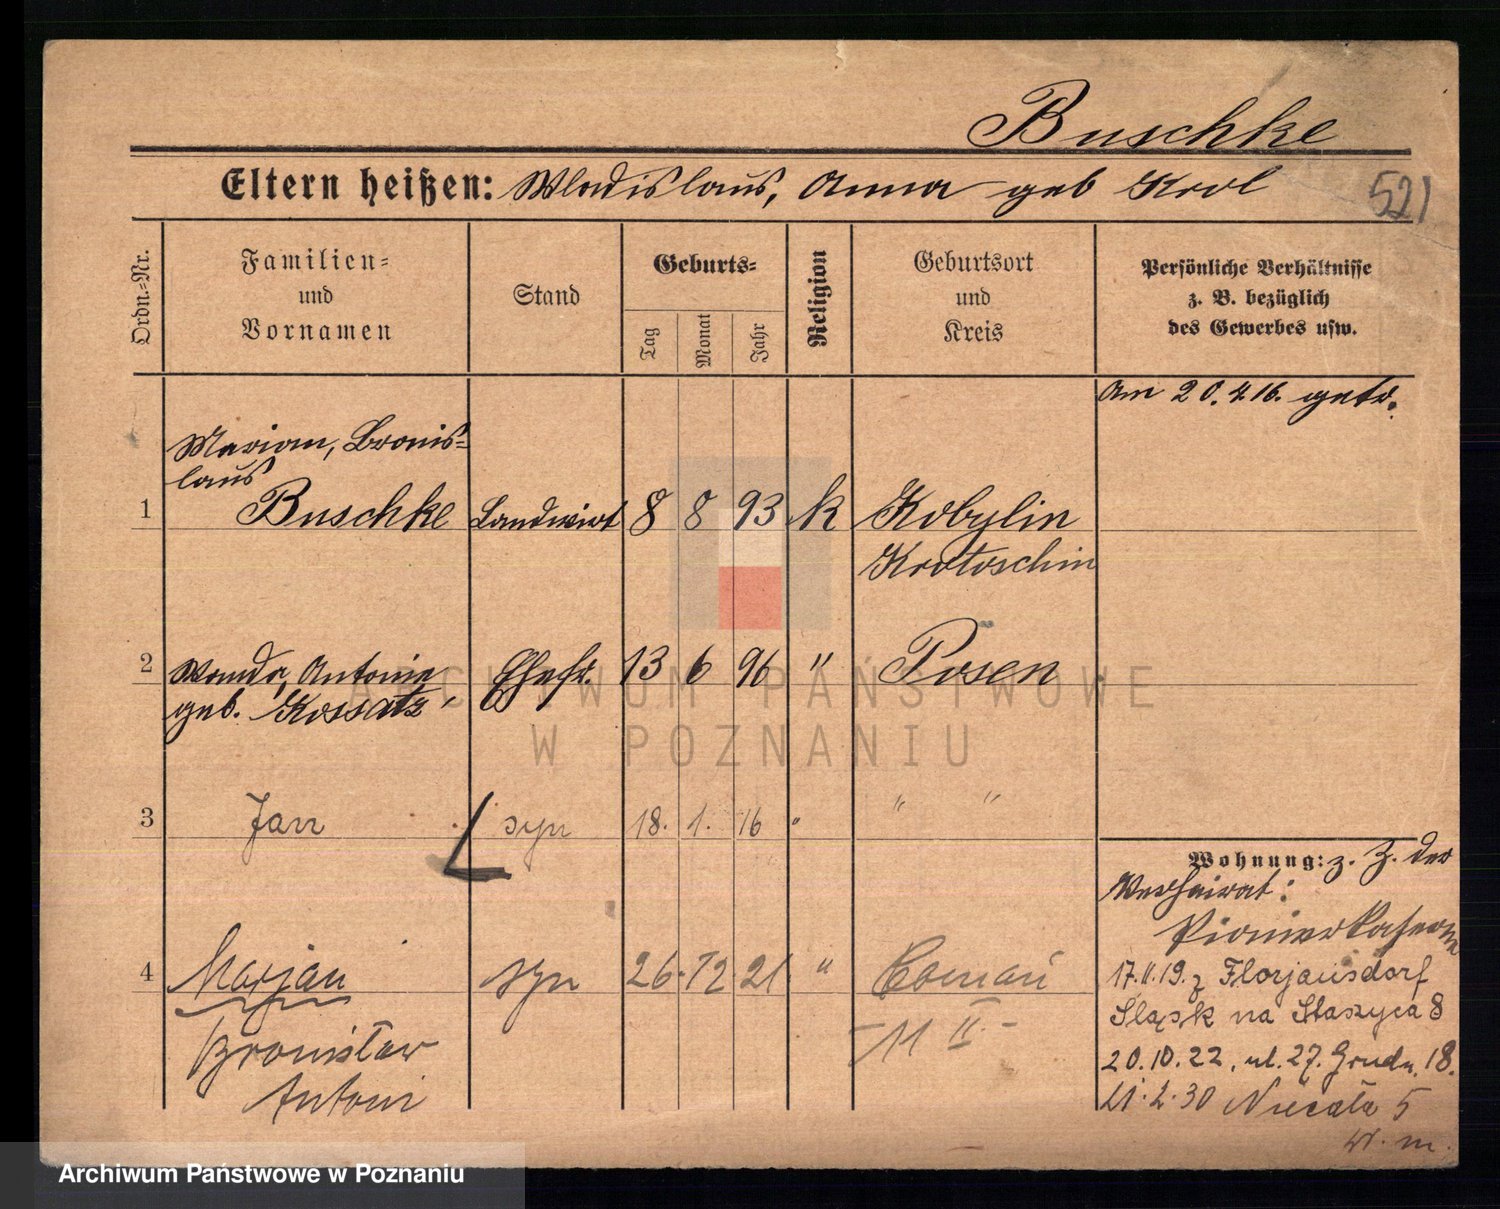 Buschke
Eltern heißen: Wladislaus, Anna geb Krol
521
Ordn.-Nr.
Familien-
und
Vornamen
Stand
Geburts-
Tag
Monat
Jahr
Religion
Geburtsort
und
Kreis
Persönliche Verhältnisse
z. B. bezüglich
des Gewerbes usw.
Am 20.4.16. getr.
Marian, Bronis-
laus
1 Buschke Landwirt 8 8 93 k Kobylin
Krotoschin
2 Wanda, Antonie Ehefr. 13 6 96 " Posen
geb. Kossatz
3 Jan syn 18. 1. 16 " " "
Wohnung: z. Z. der
Verheirat:
Pionierkaserne
4 Marjan syn 26. 12 21 "
Bronisław
Antoni
11 II.
17.11.19. z Florjansdorf
Śląsk na Staszyca 8
20.10.22, ul. 27. Grudn. 18.
21.2.30 Niecała 5
W. m.
ARCHIWUM PAŃSTWOWE
W POZNANIU
Archiwum Państwowe w Poznaniu